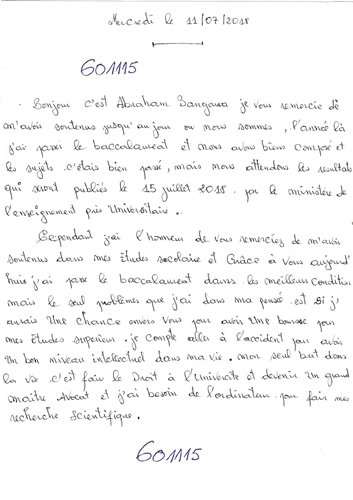 Mercredi le 11/07/2018
601115
. Bonjour c'est Abraham Sangoura je vous remercie de
m'avoir soutenus jusqu'au jour ou nous sommes, l'année là
j'ai passé le baccalaureat et nous avons biens composé et
les sujets c'étais bien passé, mais nous attendons les resultats
qui seront publiés le 15 juillet 2018. par le ministère de
l'enseignement près Universitaire.
Cependant j'ai l'honneur de vous remerciez de m'avoir
soutenus dans mes Études scolaire et Grâce à Vous aujourd'
huis j'ai passé le baccalaureat dans les meilleurs Condition
mais le seul problèmes que j'ai dans ma pensé est Si j'
aurais Une chance envers Vous pour avoir Une bourse pour
mes Études superieur. je compte aller à l'accident pour avoir
Un bon niveau intelectuel dans ma vie. mon seul but dans
la vie c'est fair le Droit à l'Université et devenir Un grand
maître Avocat et j'ai besoin de l'ordinateur pour fair mes
recherche Scientifique.
601115